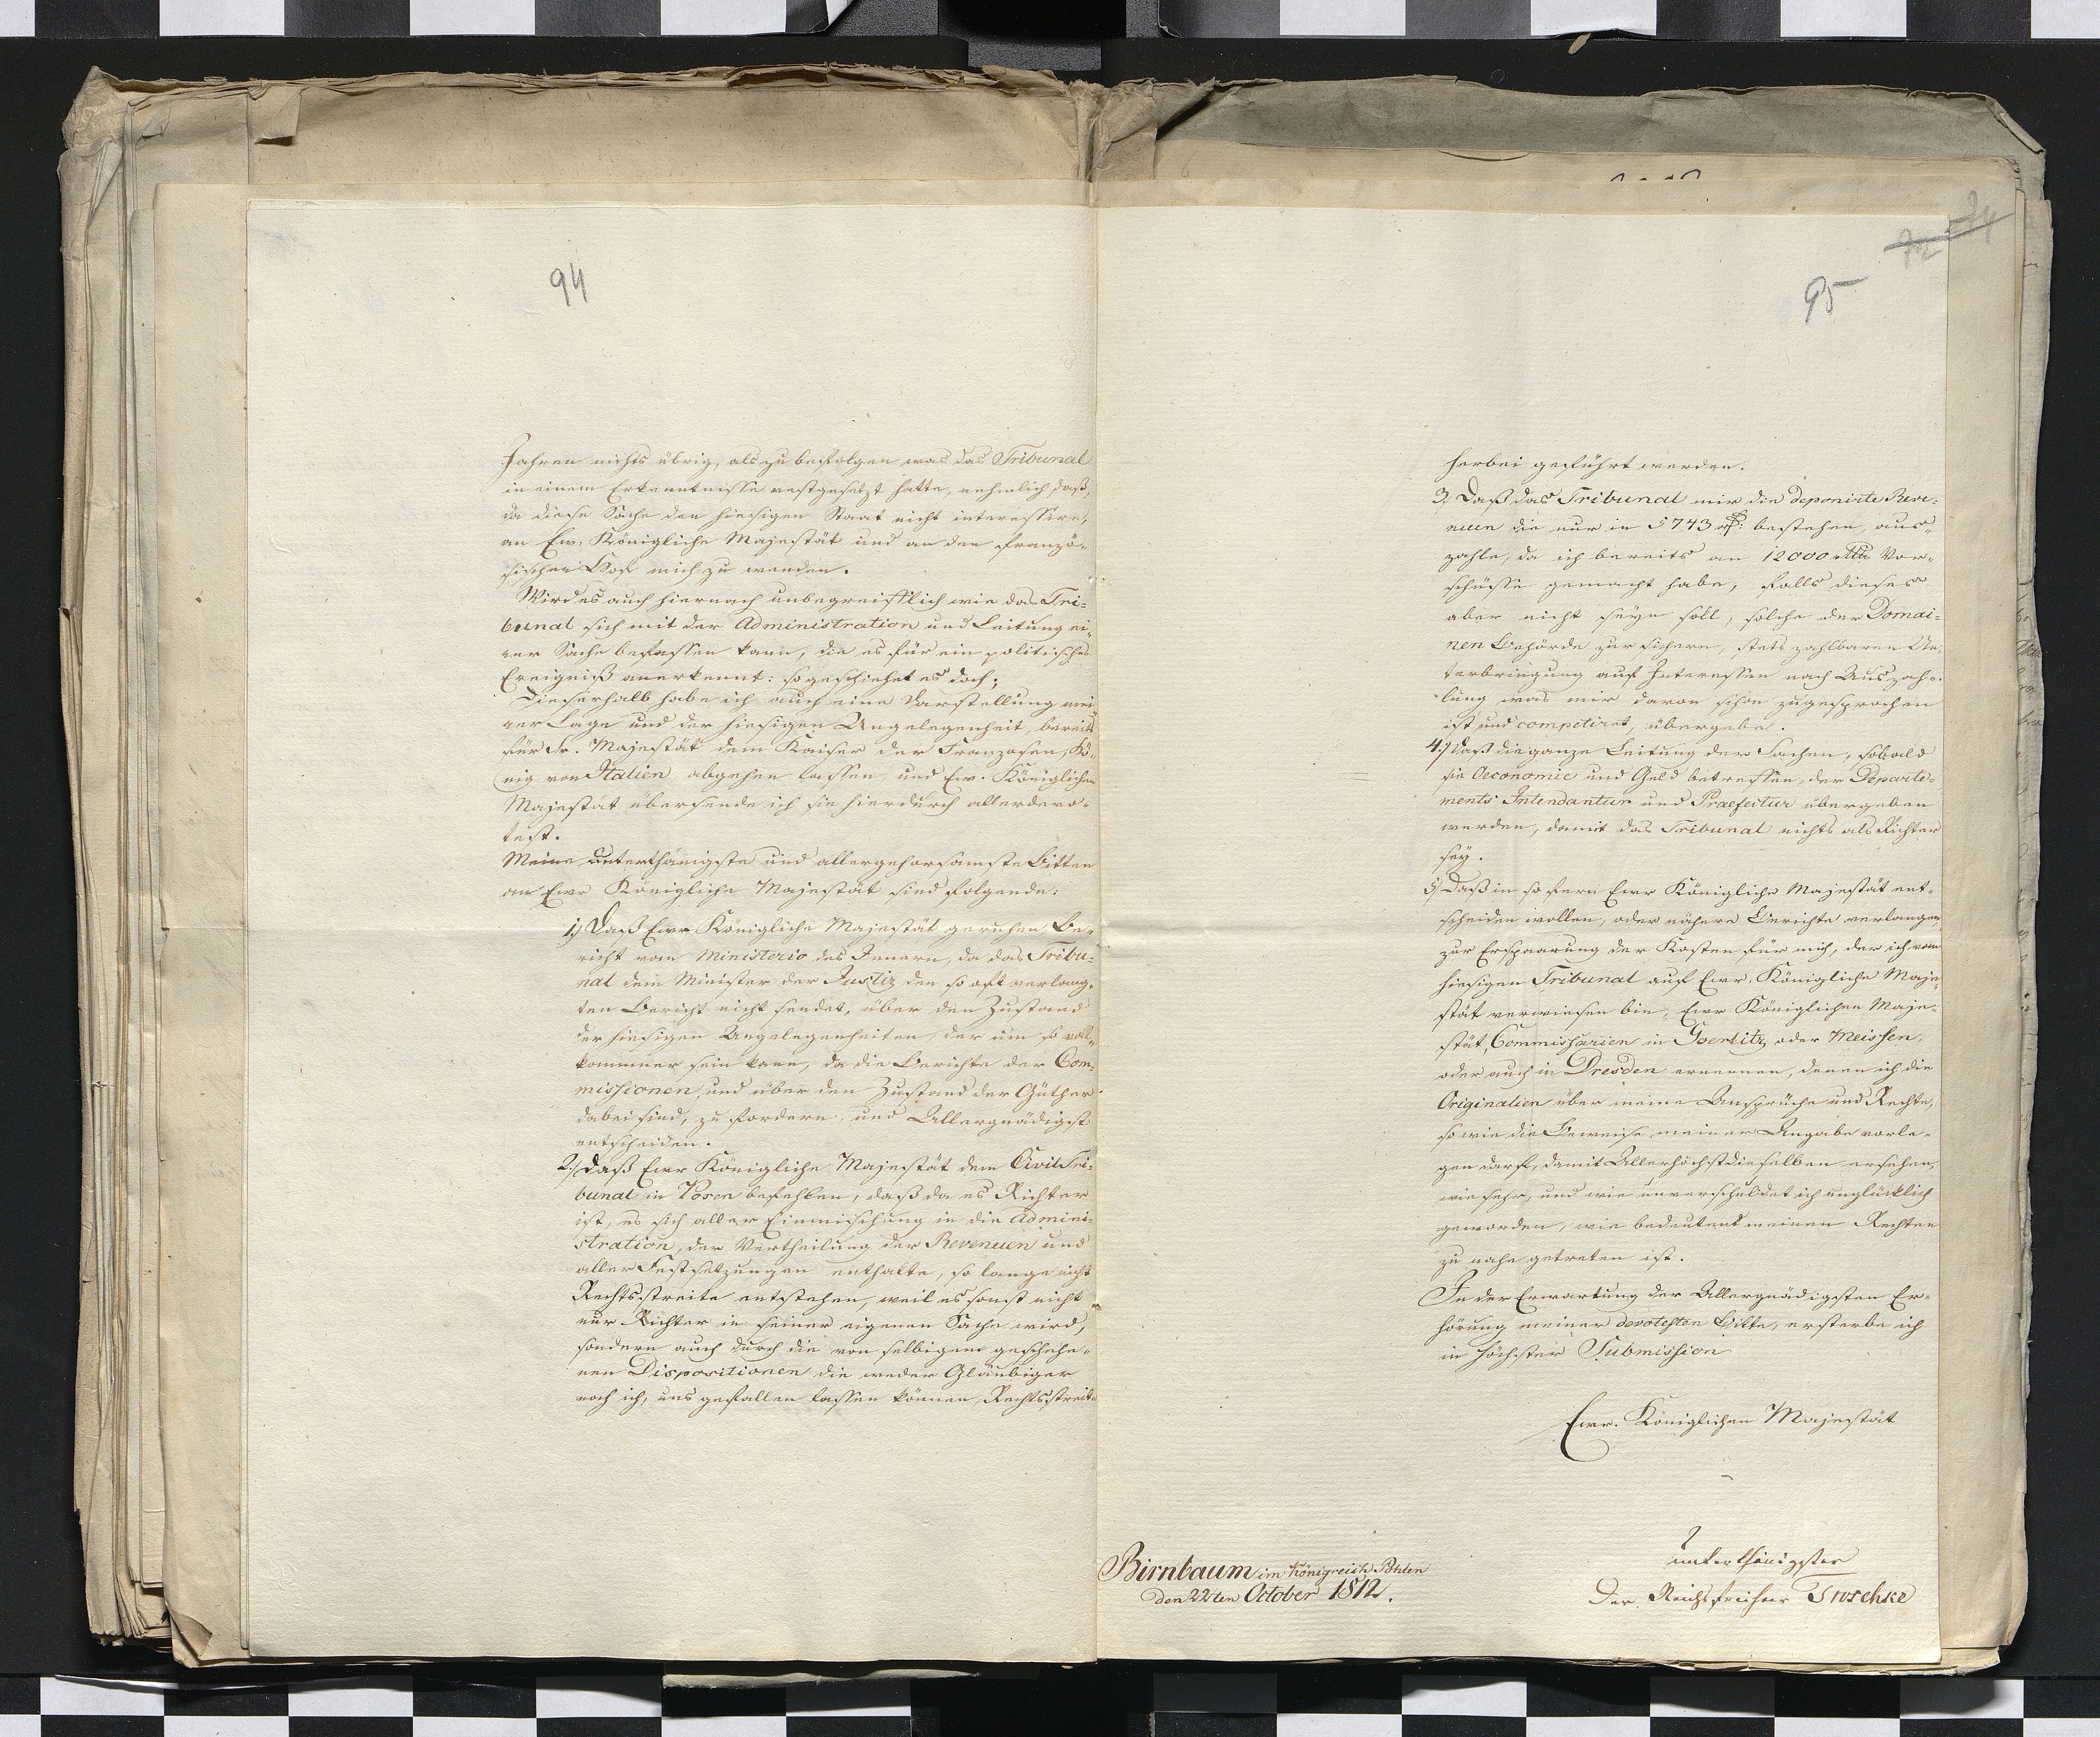 94
Jahren nichts übrig, als zu befolgen was das Tribunal
in einem Erkenntnisse vestgesetzt hatte, nehmlich, daß,
da diese Sache den hiesigen Staat nicht interessire,
an Ew: Königliche Majestät und an den franzö-
sischen Hof mich zu wenden.
Wird es auch hiernach unbegreifflich wie das Tri=
bunal sich mit der Administration und Leitung ei-
ner Sache befassen kann, die es für ein politisches
Ereigniß anerkennt: so geschiehet es doch;
Dieserhalb habe ich auch eine Darstellung mei
ner Lage und der hiesigen Angelegenheit, bereits
für Sr. Majestät dem Kaiser der Franzosen, Kö-
nig von Italien, abgehen lassen, und Ew. Königlichen
Majestät übersende ich sie hierdurch allerdevo-
test.
Meine unterthänigste und allergehorsamste Bitten
an Ewr Königliche Majestät sind folgende:
1) Daß Ewr Königliche Majestät geruhen, Be-
richt vom Ministerio des Innern, da das Tribu-
nal dem Minister der Justiz den so oft verlang-
ten Bericht nicht sendet, über den Zustand
der hiesigen Angelegenheiten, der um so voll-
kommner sein kann, da die Berichte der Com-
missionen, und über den Zustand der Güther
dabei sind, zu fordern, und Allergnädigst
entscheiden.
2) Daß Ewr Königliche Majestät dem Civil Tri-
bunal in Posen befehlen, daß da es Richter
ist, es sich aller Einmischung in die Admini-
stration, der Vertheilung der Revenuen und
aller Festsetzungen enthalte, so lange nicht
Rechtsstreite entstehen, weil es sonst nicht
nur Richter in seiner eigenen Sache wird,
sondern auch durch die von selbigem geschehe-
nen Dispositionen die weder Gläubiger
noch ich, uns gefallen lassen können, Rechtsstreite
95
herbei geführt werden.
3, Daß das Tribunal mir die deponirte Reve-
nuen die nur in 5743 bestehen, aus-
zahle, da ich bereits an 12000 Vor-
schüsse gemacht habe, falls dieses
aber nicht seyn soll, solche der Domai-
nen Behörde zur sichern, stets zahlbaren Un
terbringung auf Interessen nach Auszah-
lung was mir davon schon zugesprochen
ist und competiret, übergebe.
4) Daß die ganze Leitung der Sachen, sobald
sie Oeconomie und Geld betreffen, der Departe-
ments Intendantur und Praefectur übergeben
werden, damit das Tribunal nichts als Richter
sey.
5) Daß in so fern Ewr Königliche Majestät ent-
scheiden wollen, oder nähere Berichte verlangen,
zur Ersparung der Kosten für mich, der ich vom
hiesigen Tribunal auf Ewr. Königliche Maje-
stät verwiesen bin, Ewr Königlichen Maje-
stät, Commissarien in Goerlitz, oder Meissen,
oder auch in Dresden ernennen, denen ich die
Originalien über meine Ansprüche und Rechte,
so wie die Beweise meiner Angabe vorle-
gen darf, damit Allerhöchstdieselben ersehen,
wie sehr, und wie unverschuldet ich unglücklich
geworden, wie bedeutend meinen Rechten
zu nahe getreten ist.
In der Erwartung der Allergnädigsten Er-
hörung meiner devotesten Bitte, ersterbe ich
in höchster Submission
Ewr. Königlichen Majestät
unterthänigster
Der Reichsfreiherr Troschke
Birnbaum im Königreich Pohlen
den 22ten October 1812.